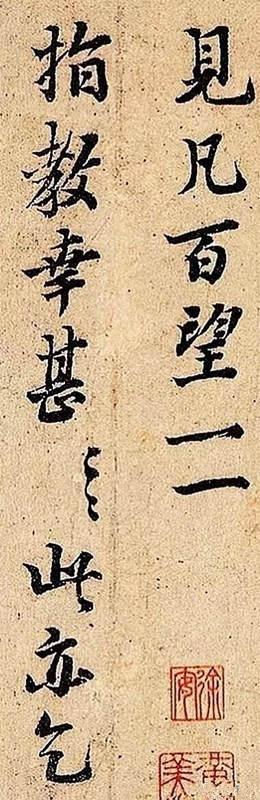 見凡百望一二
指教幸甚〻此亦乞
徐安